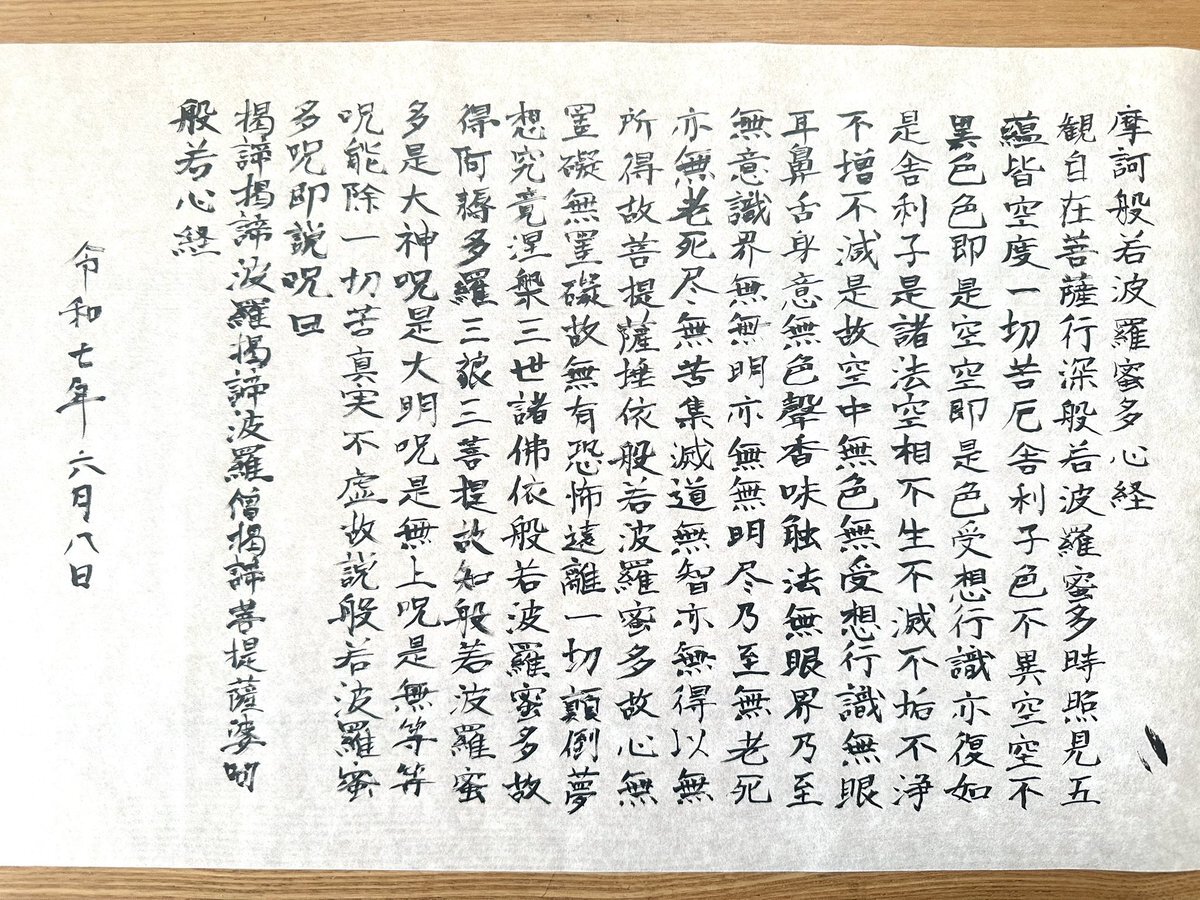 摩訶般若波羅蜜多心経
観自在菩薩行深般若波羅蜜多時照見五
蘊皆空度一切苦厄舎利子色不異空空不
異色色即是空空即是色受想行識亦復如
是舎利子是諸法空相不生不滅不垢不浄
不増不減是故空中無色無受想行識無眼
耳鼻舌身意無色聲香味触法無眼界乃至
無意識界無無明亦無無明尽乃至無老死
亦無老死尽無苦集滅道無智亦無得以無
所得故菩提薩埵依般若波羅蜜多故心無
罣礙無罣礙故無有恐怖遠離一切顛倒夢
想究竟涅槃三世諸佛依般若波羅蜜多故
得阿耨多羅三藐三菩提故知般若波羅蜜
多是大神呪是大明呪是無上呪是無等等
呪能除一切苦真実不虚故説般若波羅蜜
多呪即説呪曰
掲諦掲諦波羅掲諦波羅僧掲諦菩提薩婆訶
般若心経
令和七年六月八日